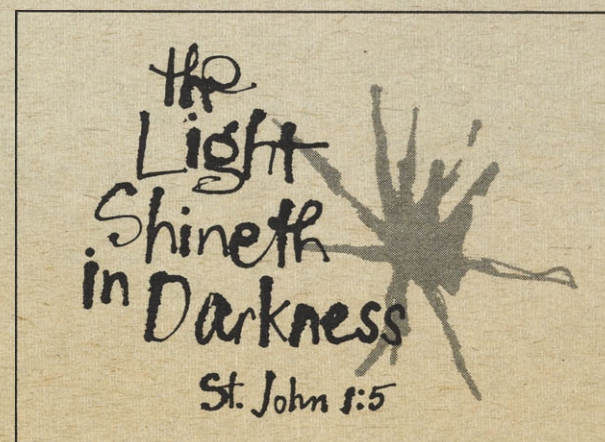 the
Light
Shineth
in Darkness
St. John 1:5